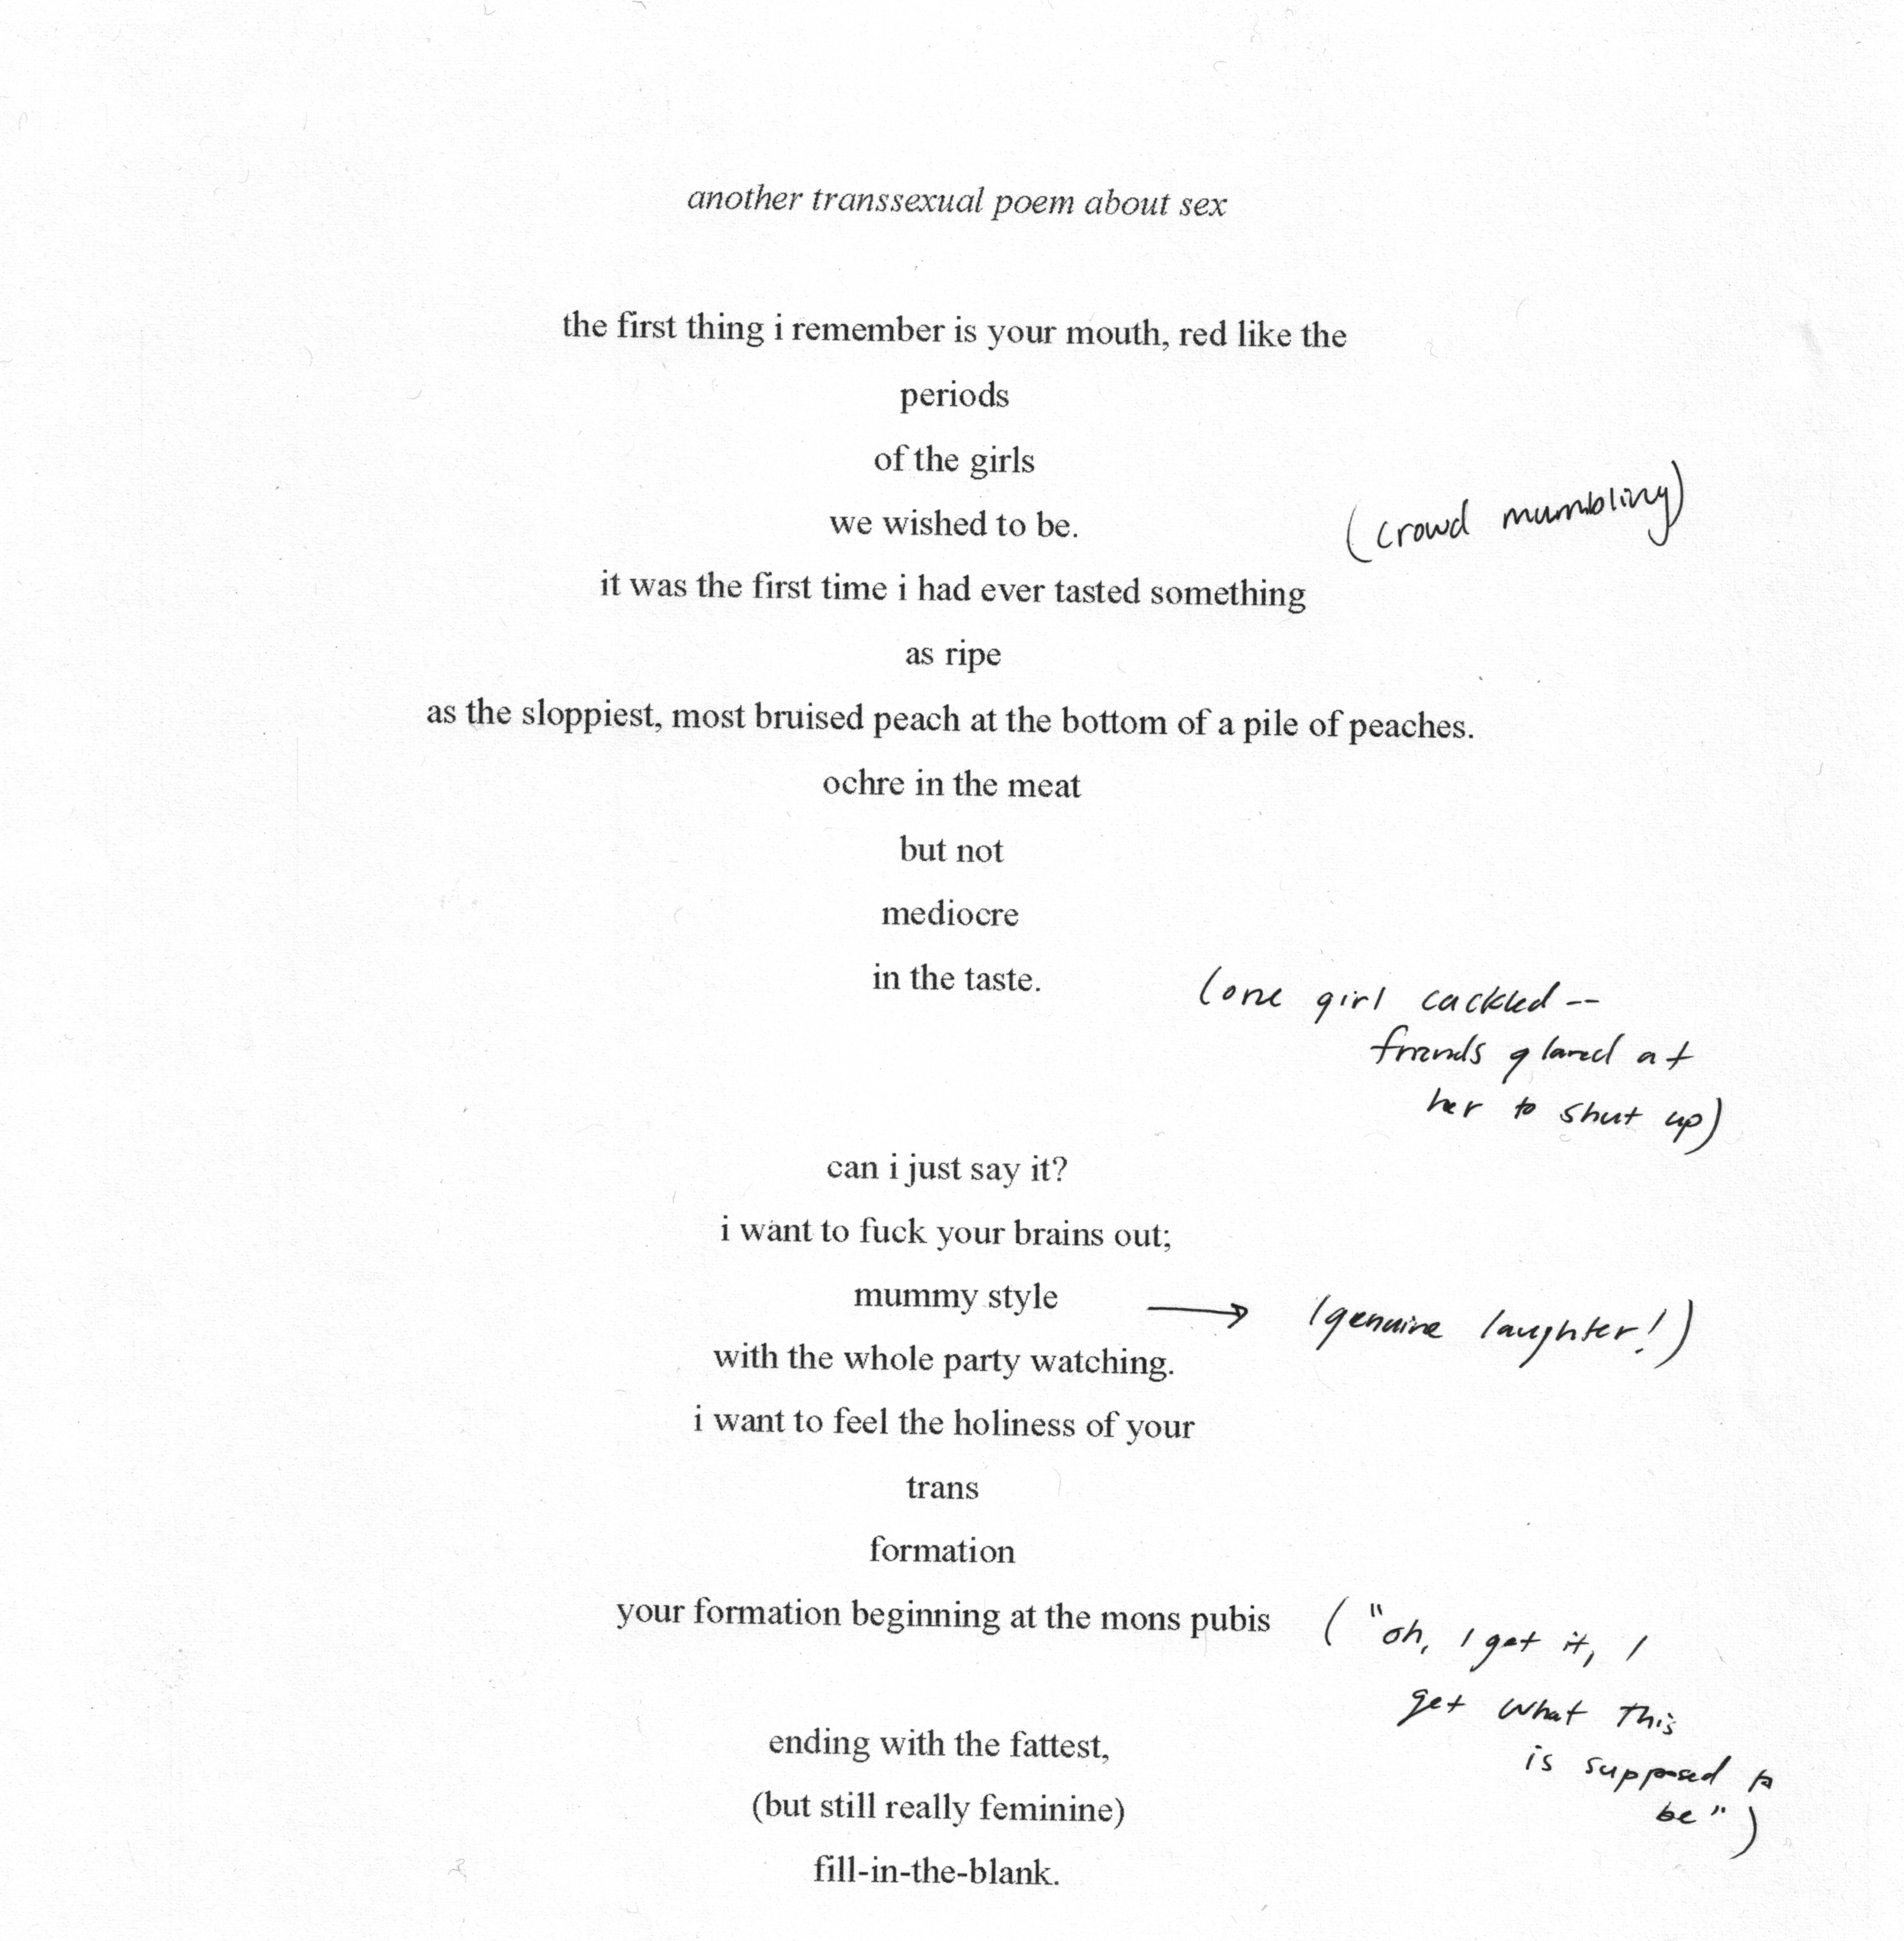 another transsexual poem about sex
the first thing i remember is your mouth, red like the
periods
of the girls
we wished to be.
(crowd mumbling)
it was the first time i had ever tasted something
as ripe
as the sloppiest, most bruised peach at the bottom of a pile of peaches.
ochre in the meat
but not
mediocre
in the taste.
(one girl cackled --
friends glared at
her to shut up)
can i just say it?
i want to fuck your brains out;
mummy style
(genuine laughter!)
with the whole party watching.
i want to feel the holiness of your
trans
formation
your formation beginning at the mons pubis
("oh, I get it, I
get what this
is supposed to
be")
ending with the fattest,
(but still really feminine)
fill-in-the-blank.